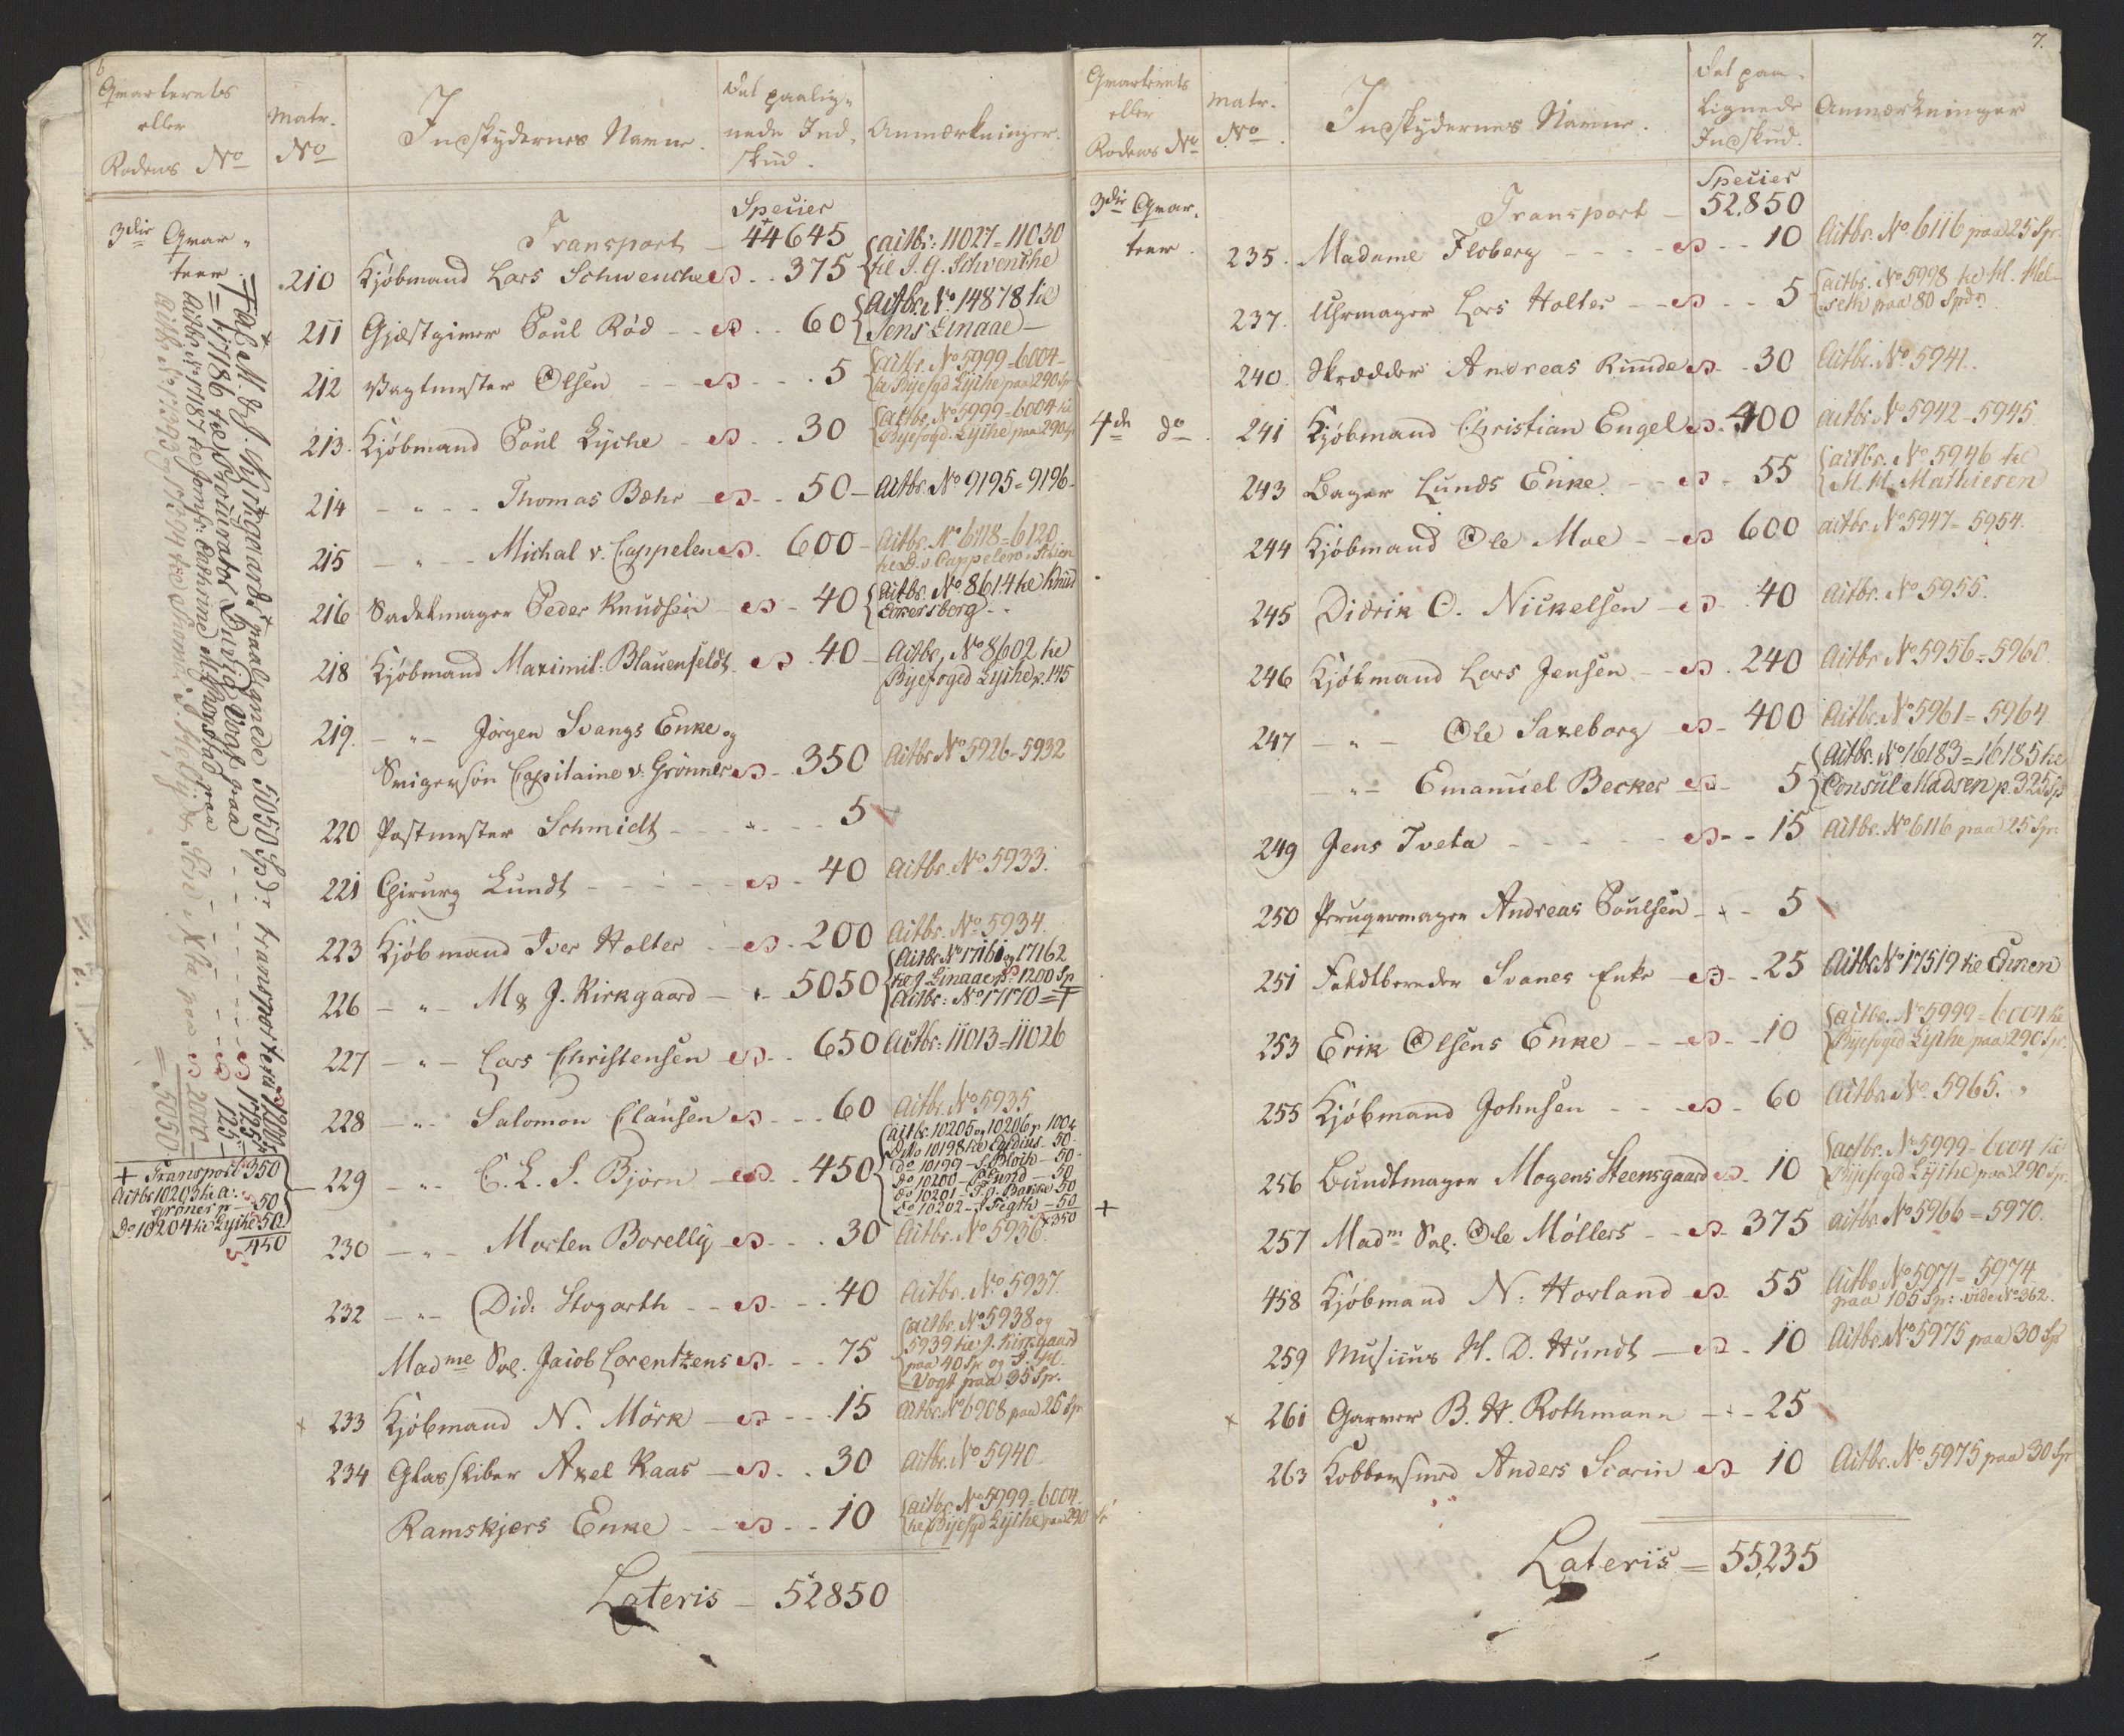 6
Qvarterets
eller
Rodens No
Matr.
No
Indskydernes Navne.
Det paalig-
nede Ind-
skud.
Anmærkninger.
3die Qvar-
teer.
Species
Transport - 44645
210 Kjøbmand Lars Schwencke - 375 Actbr: 11027=11030
til J. G. Schwencke
211 Gjæstgiver Poul Röd - 60 Actbr. No. 14878 til
Jens Linaae -
212 Vagtmester Olsen - 5 Actbr. No 5999-6004-
til Byefgd Lyche paa 290 Sp
213. Kjøbmand Poul Lyche - 30 Actbr. No 5999=6004 til
Byefogd. Lyche paa 290 Sp
214 - " - Thomas Bæhr - 50 - Actbr. No 9195=9196-
215 - " - Michal v. Cappelen - 600 - Actbr. No 6118=6120
til D. v. Cappelen i Skien
216 Sadelmager Peder Knudsen - 40 Actbr. No 8614 til Knud
Eckersberg -
218 Kjøbmand Maximil: Blauenfeldt - 40 - Actbr, No 8602 til
Byefoged Lyche p. 145
219. - " - Jørgen Svangs Enke og
Svigersön Capitaine v: Grönner - 350 Actbr No 5926-5932
220 Postmester Schmidt - 5
221 Chirurg Lundt - 40 Actbr. No. 5933.
223 Kjøbmand Iver Holter - 200 Actbr. No. 5934.
226 - " - M & J. Kirkgaard - 5050 Actbr No 17161 og 17162
til J Linaae p: 1200 Sp
Actbr: No. 17170 = +
227 - " - Lars Christensen - 650 Actbr: 11013=11026
228 - " - Salomon Clausen - 60 Actbr. No 5935
229 - " - C. L. S. Bjørn - 450 Actbr: 10205 og 10206 p 100
Dito 10198 til Cudrius - 50-
do 10199 - S. Bloch - 50-
do 10200 - C Lund - 50
do 10201 - T. O. Bakke 50
do 10202 - J Fegth - 50
350
230 - " - Morten Borelly - 30 Actbr. No 5936.
232 - " - Did: Stogarth - 40 Actbr. No. 5937.
Madme Sal. Jacob Lorentzens - 75 Actbr. No 5938 og
5939 til J. Kirkgaard
paa 40 Sp og
Vogt paa 35 Sp.
233 Kjøbmand N. Mörk - 15 Actbr. No 6908 paa 25 Sp
234 Glassliber Axel Kaas - 30 Actbr. No 5940-
Ramskjærs Enke - 10 Actbr. No 5999=6004
til Byefgd Lyche paa 290 Sp
Lateris - 52850
+ Af de M. & J. Kirkgaards paalignede 5050 Spd: transporteres 1200
= 17186 til Procurator Ludvig Vogt paa - 1725
Actbr. No 17187 til Jomfr: Cathrine M. Borstad paa - 125-
2000-
= 5050
+ Transport 350
Actbr 10203 til a:
Gröner p - 50
Do 10204 til Lyche 50
450
7.
Qvarterets
eller
Rodens No
Matr.
No.
Indskydernes Navne.
Det paa-
lignede
Indskud.
Anmærkninger
3die Qvar-
teer.
Species
Transport - 52,850
235. Madame Floberg - 10 Actbr. No 6116 paa 25 Sp.
237. Uhrmager Lars Holter - 5 Actbr. No 5998 til H. Hel-
seth paa 80 Spdr.
240. Skrædder Andreas Runde - 30 Actbr. No. 5941.
4de do. 241 Kjøbmand Christian Engel - 400 Actbr. No 5942-5945.
243 Bager Lunds Enke - 55 Actbr. No 5946 til
H. H. Mathiesen
244 Kjøbmand Ole Moe - 600 Actbr. No 5947=5954.
245 Didrik C. Nickelsen - 40 Actbr. No 5955.
246 Kjøbmand Lars Jensen - 240 Actbr No 5956=5960.
247 - " - Ole Saxeborg - 400 Actbr. No 5961=5964.
- " - Emanuel Becker - 5 Actbr. No. 16183=16185 til
Consul Madsen p. 325 Sp
249 Jens Tveta - 15 Actbr. No 6116 paa 25 Sp:
250 Perugvemager Andreas Poulsen - 5
251 Feldtbereder Svanes Enke - 25 Actbr. No 17519 til Enken
253 Erik Olsens Enke - 10 Actbr. No 5999=6004 til
Byefoged Lyche paa 290 Sp.
255 Kjøbmand Johnsen - 60 Actbr. No. 5965.
256 Bundtmager Mogens Steensgaard - 10 Actbr. No 5999=6004 til
Byefogd Lyche paa 290 Sp.
+
257 Madm Sal. Ole Möllers - 375 Actbr. No 5966=5970.
458 Kjøbmand N: Hovland - 55 Actbr. No 5971=5974
paa 105 Sp: vide No 362.
259 Musicus H. D. Hundt - 10 Actbr. No 5975 paa 30 Sp
× 261 Garver B. H. Rothmann - 25
263 Kobbersmed Anders Scarin - 10 Actbr. No 5975 paa 30 Sp
Lateris = 55,235